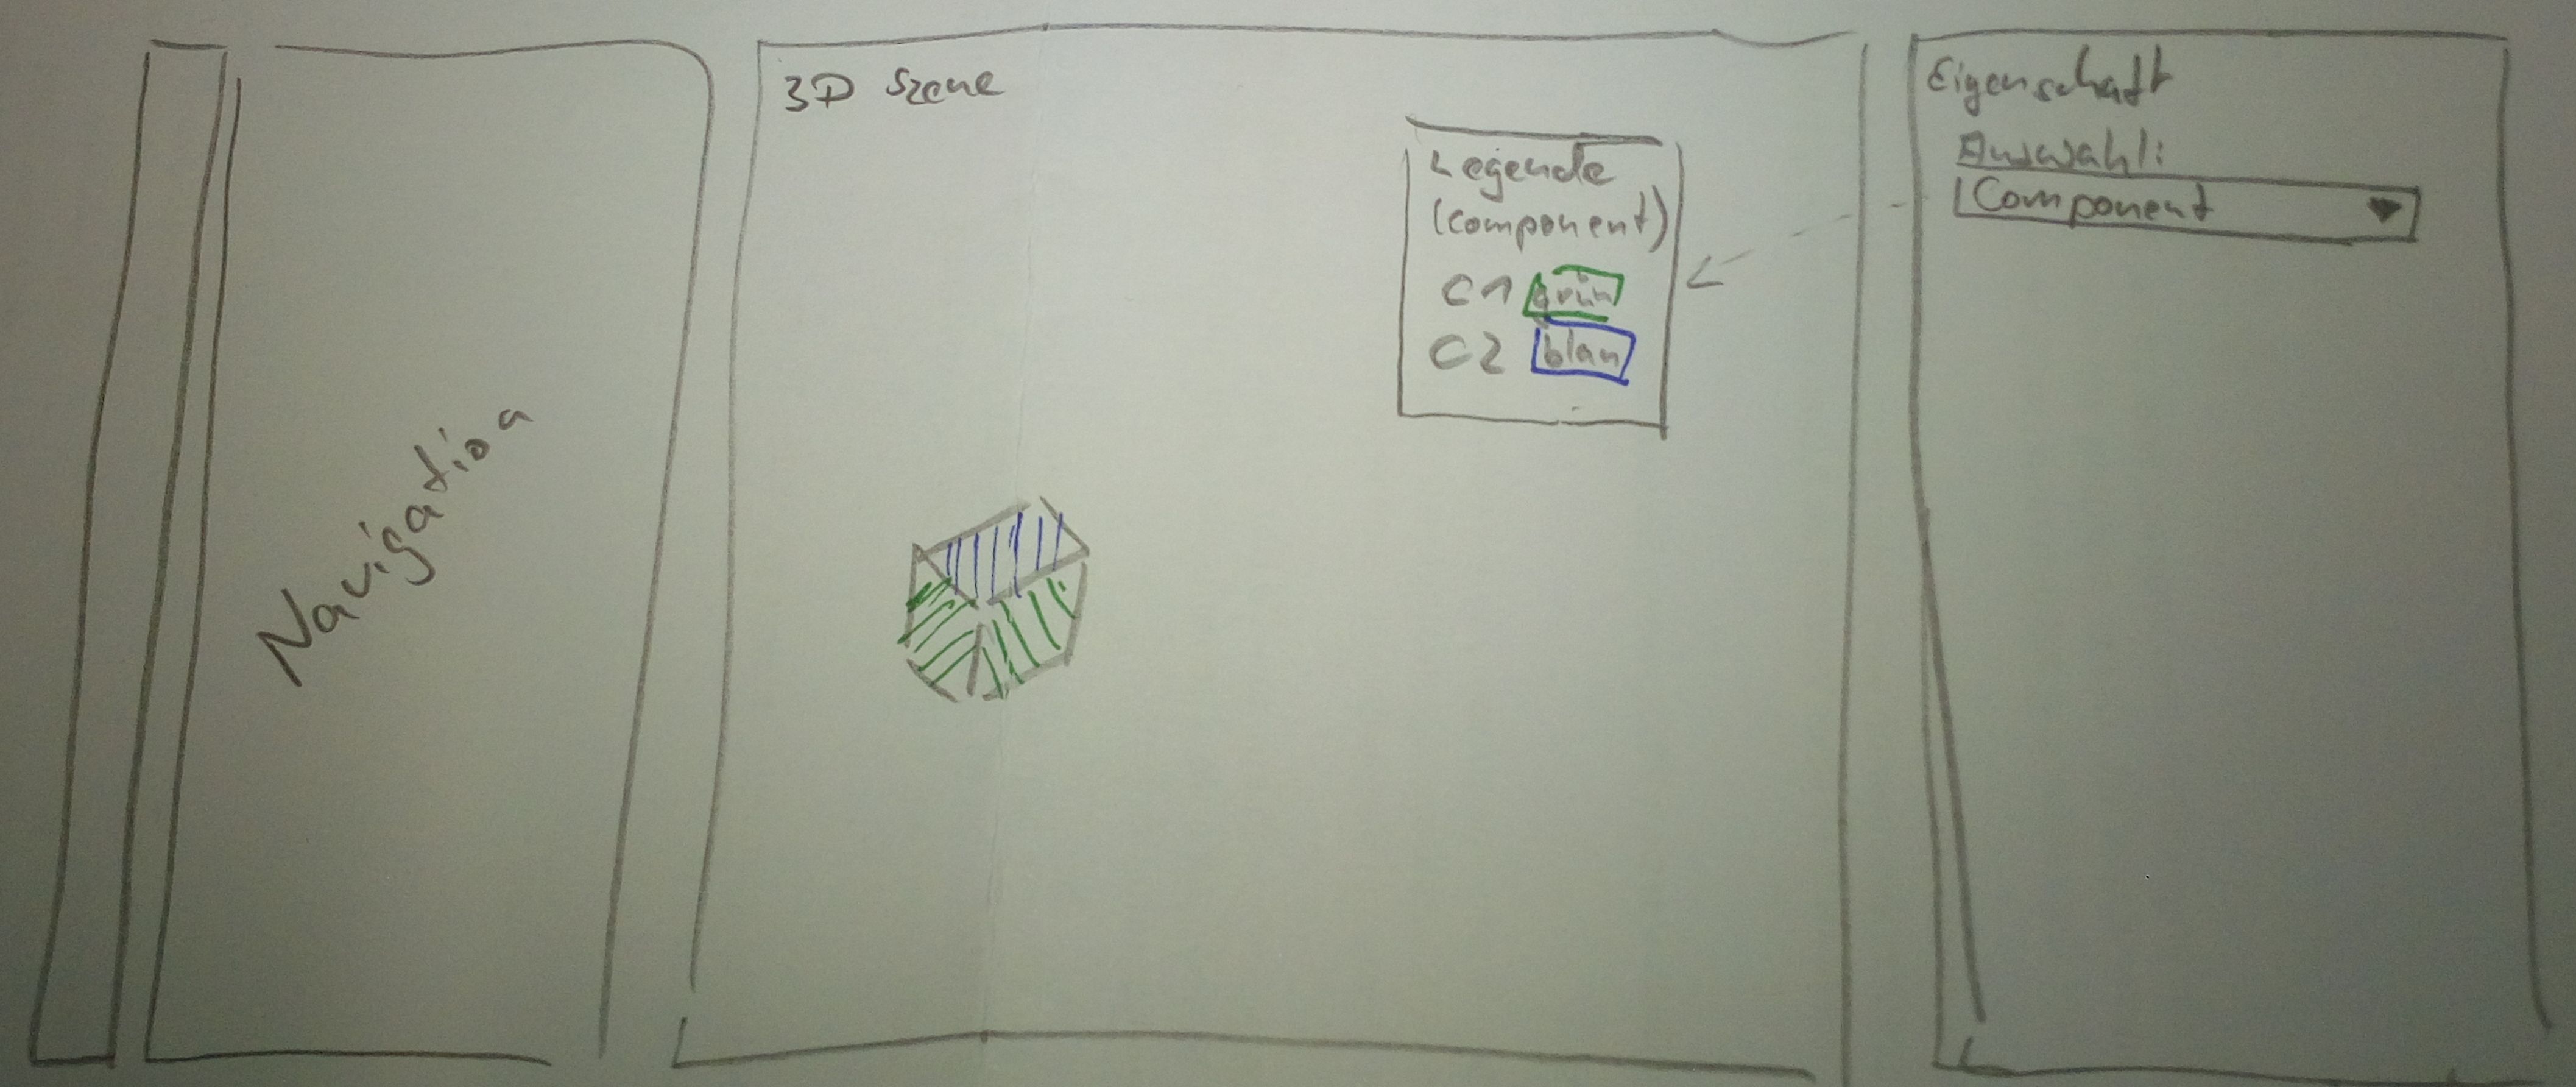 Navigation
3D Szene
Legende
(component)
C1 grün
C2 blau
Eigenschaft
Auswahl:
Component